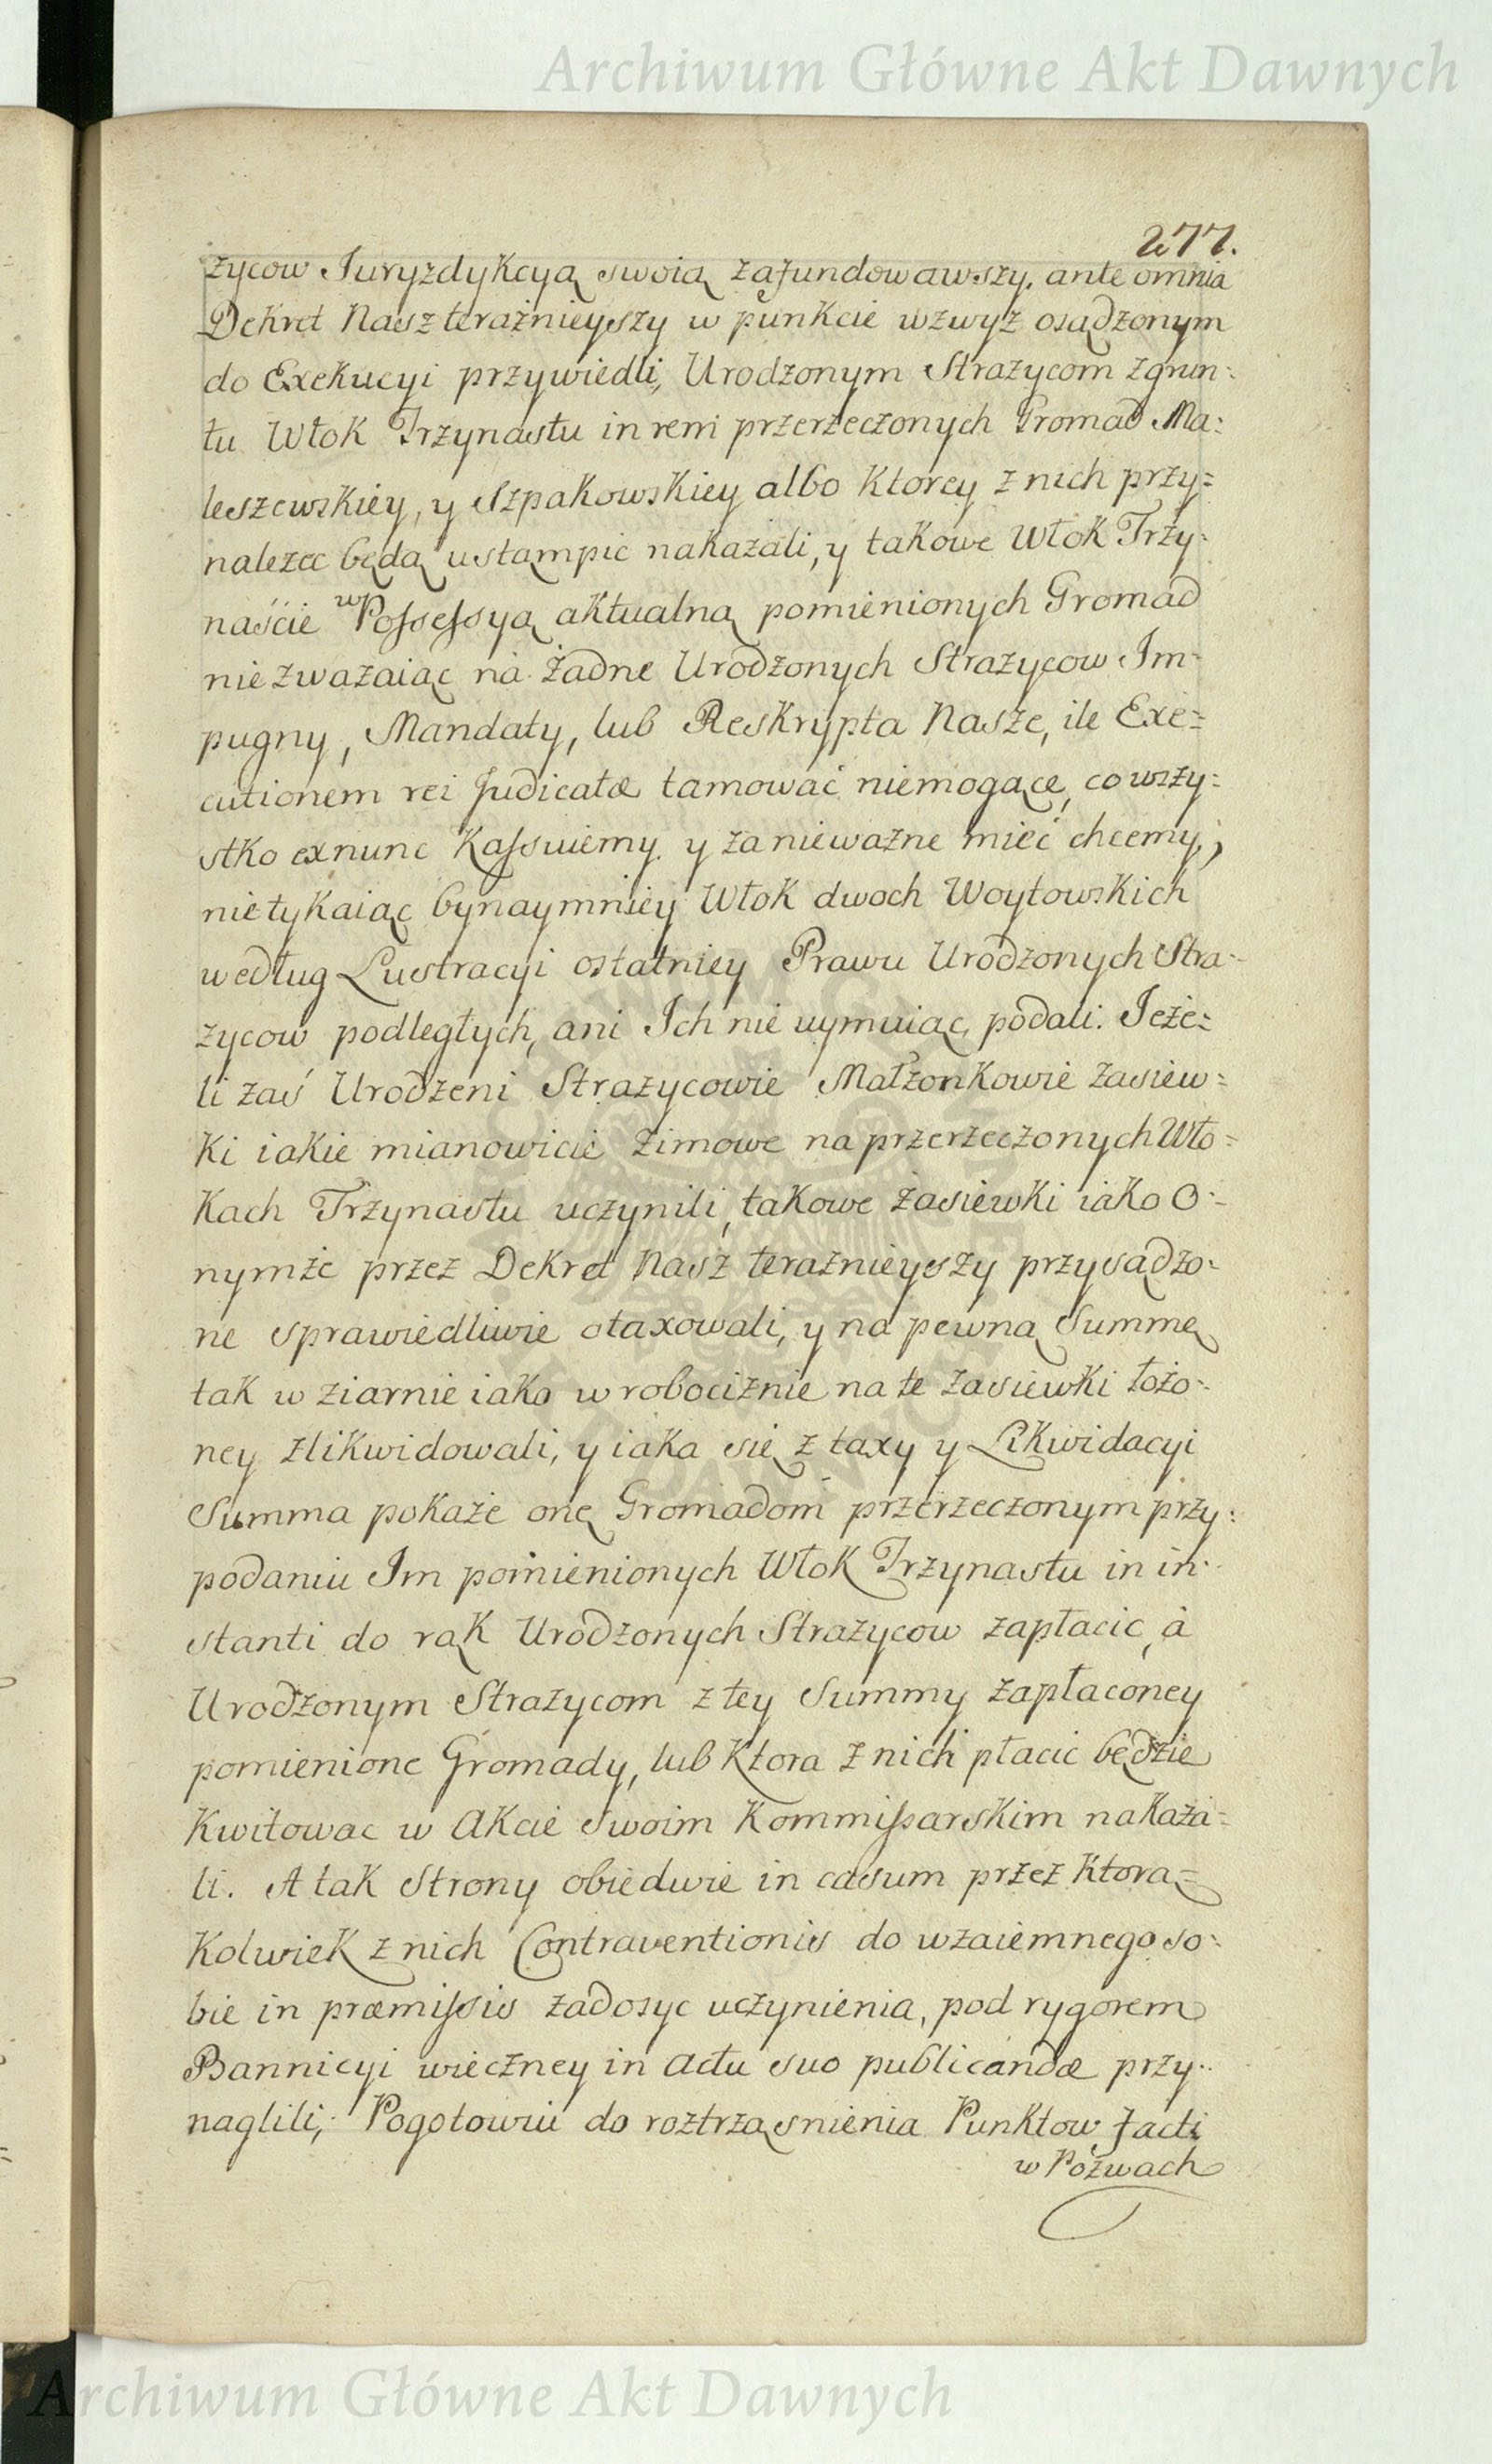 Archiwum Główne Akt Dawnych
277.
życow Juryzdykcyą swoią zafundowawszy, ante omnia
Dekret Nasz teraźnieyszy w punkcie wzwyż osądzonym
do Exekucyi przywiedli, Urodzonym Strażycom z grun-
tu Włok Trzynastu in rem przerzeczonych Gromad Ma-
leszewskiey, y Szpakowskiey albo ktorey z nich przy-
nalezec będą ustąmpic nakazali, y takowe Włok Trzy-
naście w Possessyą aktualną pomienionych Gromad
nie zważaiąc na żadne Urodzonych Strażycow Im-
pugny, Mandaty, lub Reskrypta Nasze, ile Exe-
cutionem rei Judicatæ tamować niemogące, co wszy-
stko exnunc Kassuiemy y za nieważne mieć chcemy;
nie tykaiąc bynaymniey Włok dwoch Woytowskich
według Lustracyi ostatniey Prawu Urodzonych Stra-
życow podległych, ani Ich nie uymuiąc, podali. Jeże-
li zaś Urodzeni Strażycowie Małżonkowie zasiew-
ki iakie mianowicie zimowe na przerzeczonych Wło-
kach Trzynastu uczynili, takowe zasiewki iako O-
nymże przez Dekret Nasz teraznieyszy przysądzo-
ne sprawiedliwie otaxowali, y na pewną Summę
tak w ziarnie iako w robociznie na te zasiewki łożo-
ney zlikwidowali, y iaka się z taxy y Likwidacyi
Summa pokaże onę Gromadom przerzeczonym przy
podaniu Im pomienionych Włok Trzynastu in in-
stanti do rąk Urodzonych Strażycow zapłacic, à
Urodzonym Strażycom z tey Summy zapłaconey
pomienione Gromady, lub ktora z nich płacic będzie
kwitowac w Akcie swoim Kommissarskim nakaza-
li. A tak Strony obiedwie in casum przez ktorą-
kolwiek z nich Contraventionis do wzaiemnego so-
bie in præmissis zadosyc uczynienia, pod rygorem
Bannicyi wieczney in actu suo publicandæ przy-
naglili; Pogotowiu do roztrząsnienia Punktow facti
w Pozwach
Archiwum Główne Akt Dawnych